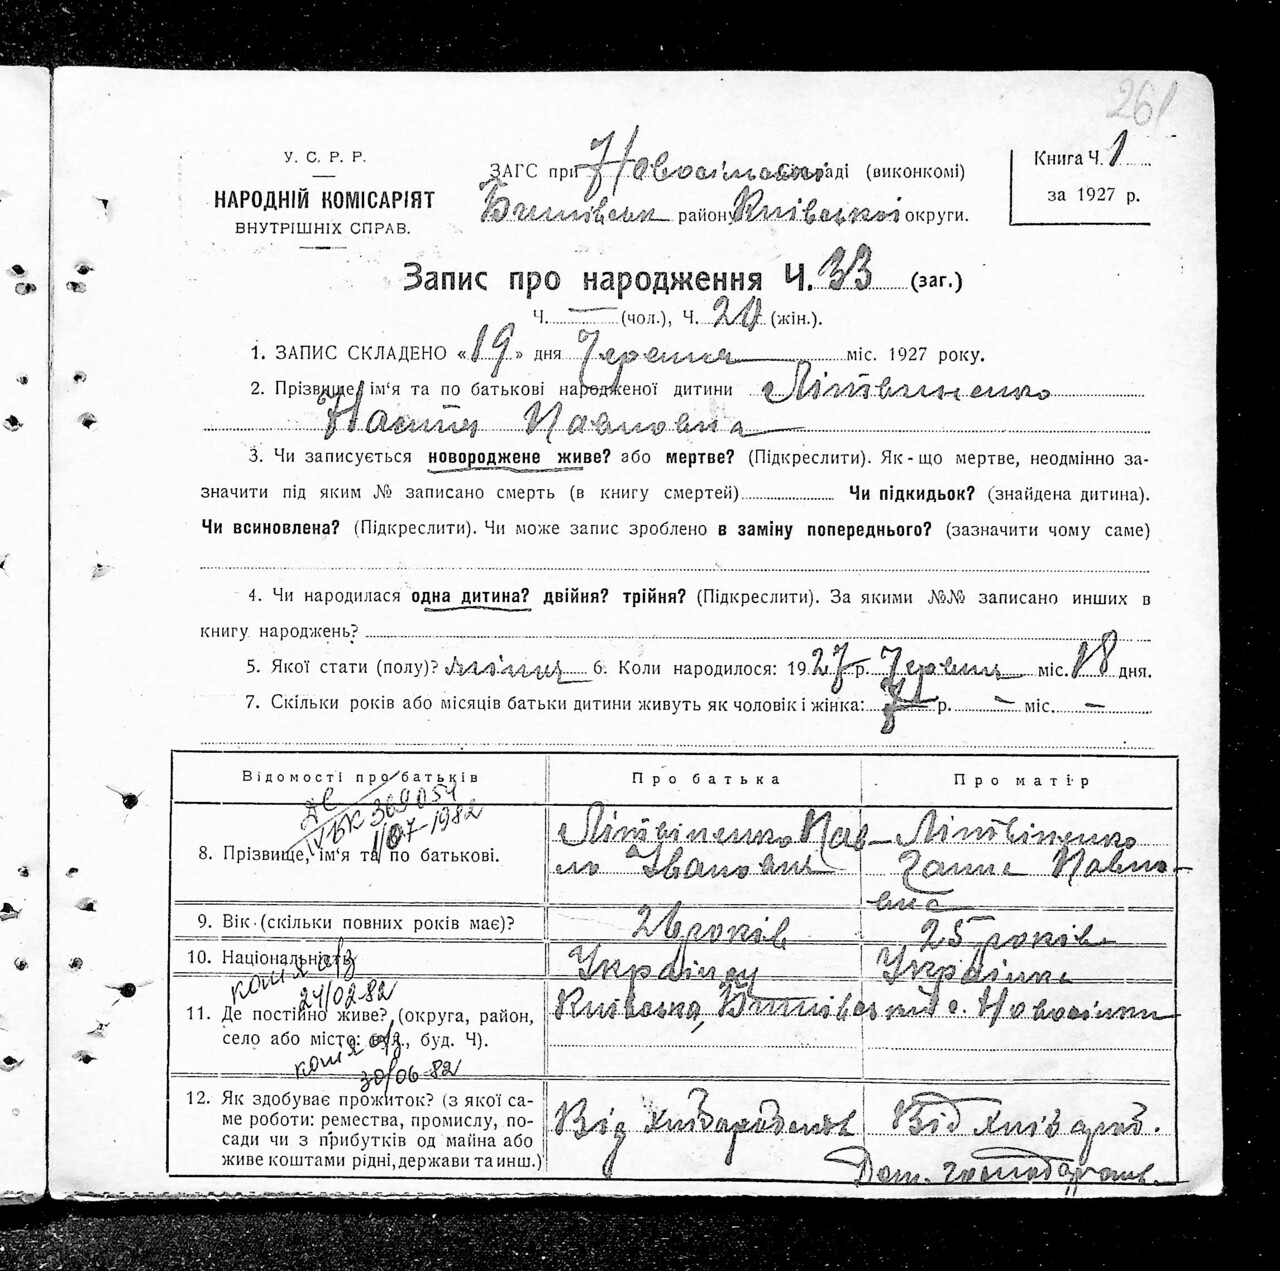 261
У. С. Р. Р.
НАРОДНІЙ КОМІСАРІЯТ
ВНУТРІШНІХ СПРАВ.
ЗАГС при Новосілській сільраді (виконкомі)
Бишівськ району Київської округи.
Книга Ч. 1
за 1927 р.
Запис про народження Ч. 33 (заг.)
Ч. — (чол.), Ч. 20 (жін.).
1. ЗАПИС СКЛАДЕНО « 19 » дня Червня міс. 1927 року.
2. Прізвище, ім'я та по батькові народженої дитини Літвиненко
Настя Павловна
3. Чи записується новороджене живе? або мертве? (Підкреслити). Як-що мертве, неодмінно за-
значити під яким № записано смерть (в книгу смертей) Чи підкидьок? (знайдена дитина).
Чи всиновлена? (Підкреслити). Чи може запис зроблено в заміну попереднього? (зазначити чому саме)
4. Чи народилася одна дитина? двійня? трійня? (Підкреслити). За якими №№ записано инших в
книгу народжень?
5. Якої стати (полу)? жіноча 6. Коли народилося: 1927 р. Червня міс. 18 дня.
7. Скільки років або місяців батьки дитини живуть як чоловік і жінка: 7 р. — міс. —
Відомості про батьків
Про батька
Про матір
ІV БК 369054
1/07-1982
8. Прізвище, ім'я та по батькові.
Літвіненко Пав-
ло Іванович
Літвіненко
Ганна Павло-
вна
9. Вік (скільки повних років має)?
26 років
25 років
10. Національність
Українец
Українка
копія а/з
24/02-82
11. Де постійно живе? (округа, район,
село або місто: вул., буд. Ч).
Київська, Бишівський с. Новосілки
копія а/з
30/06-82
12. Як здобуває прожиток? (з якої са-
ме роботи: ремества, промислу, по-
сади чи з прибутків од майна або
живе коштами рідні, держави та инш.)
Від хліборобства
Від хлібороб.
Дом. господарств.